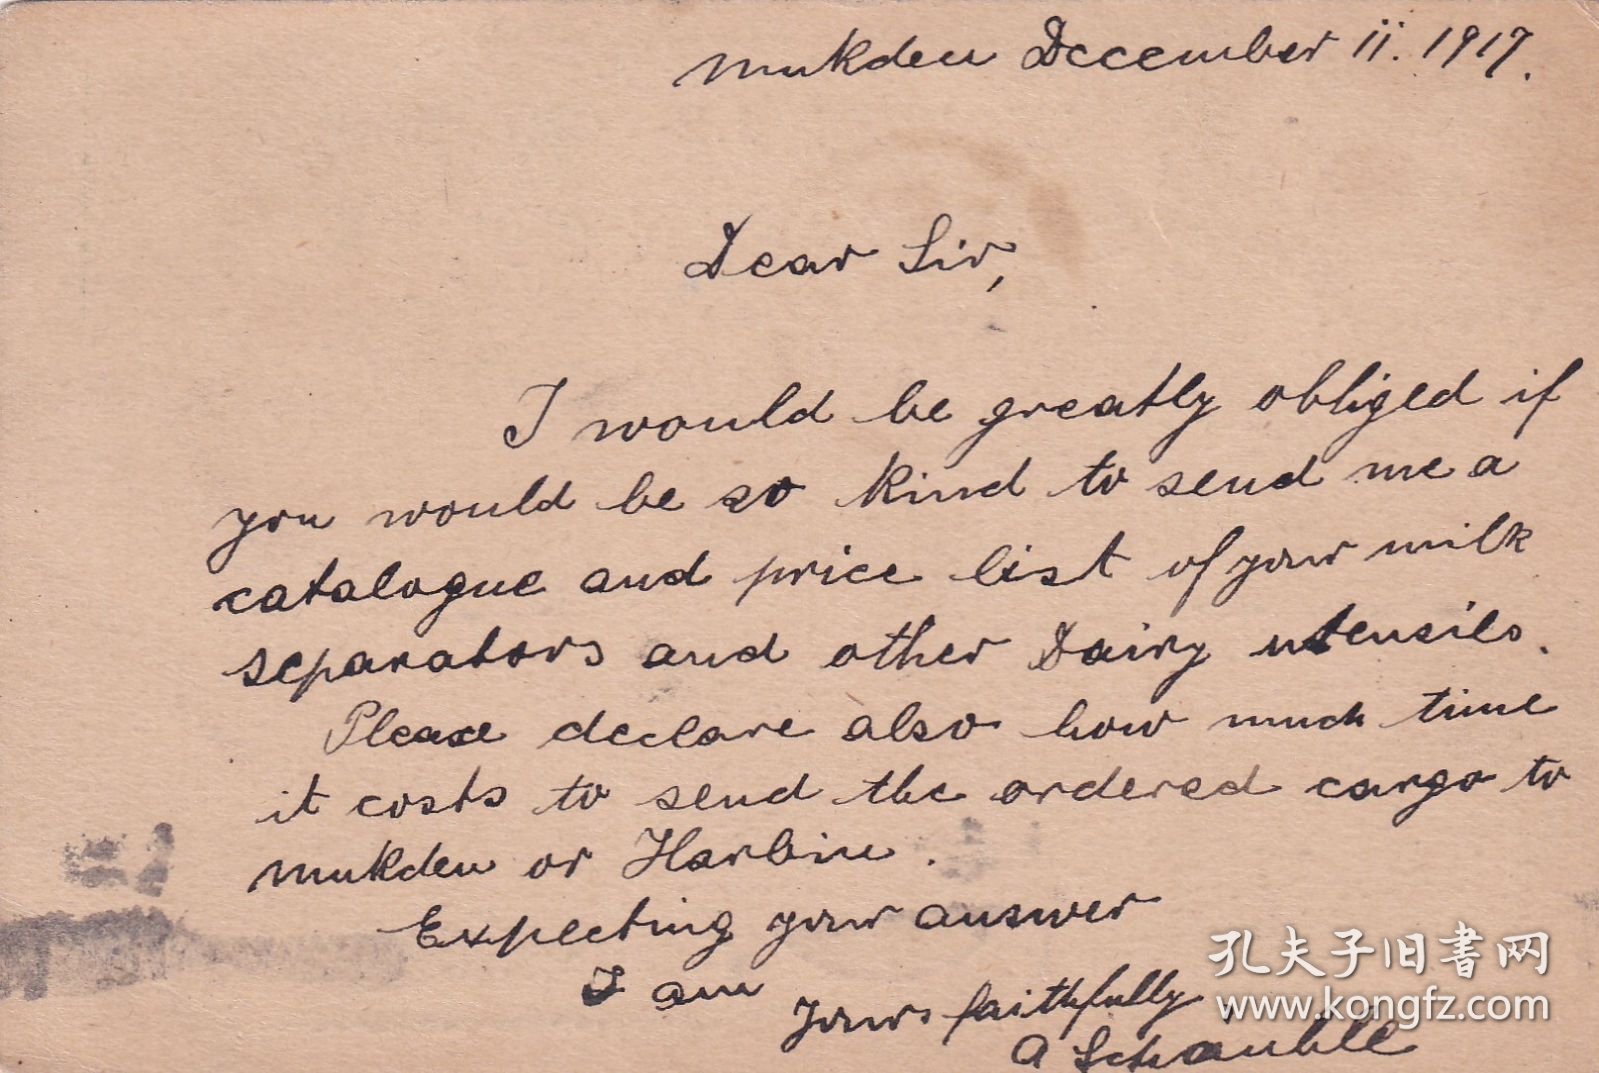 Mukden December 11. 1917.
Dear Sir,
I would be greatly obliged if
you would be so kind to send me a
catalogue and price list of your milk
separators and other Dairy utensils.
Please declare also how much time
it costs to send the ordered cargo to
Mukden or Harbin.
Expecting your answer
I am
Yours faithfully
A Schäuble
孔夫子旧书网
www.kongfz.com